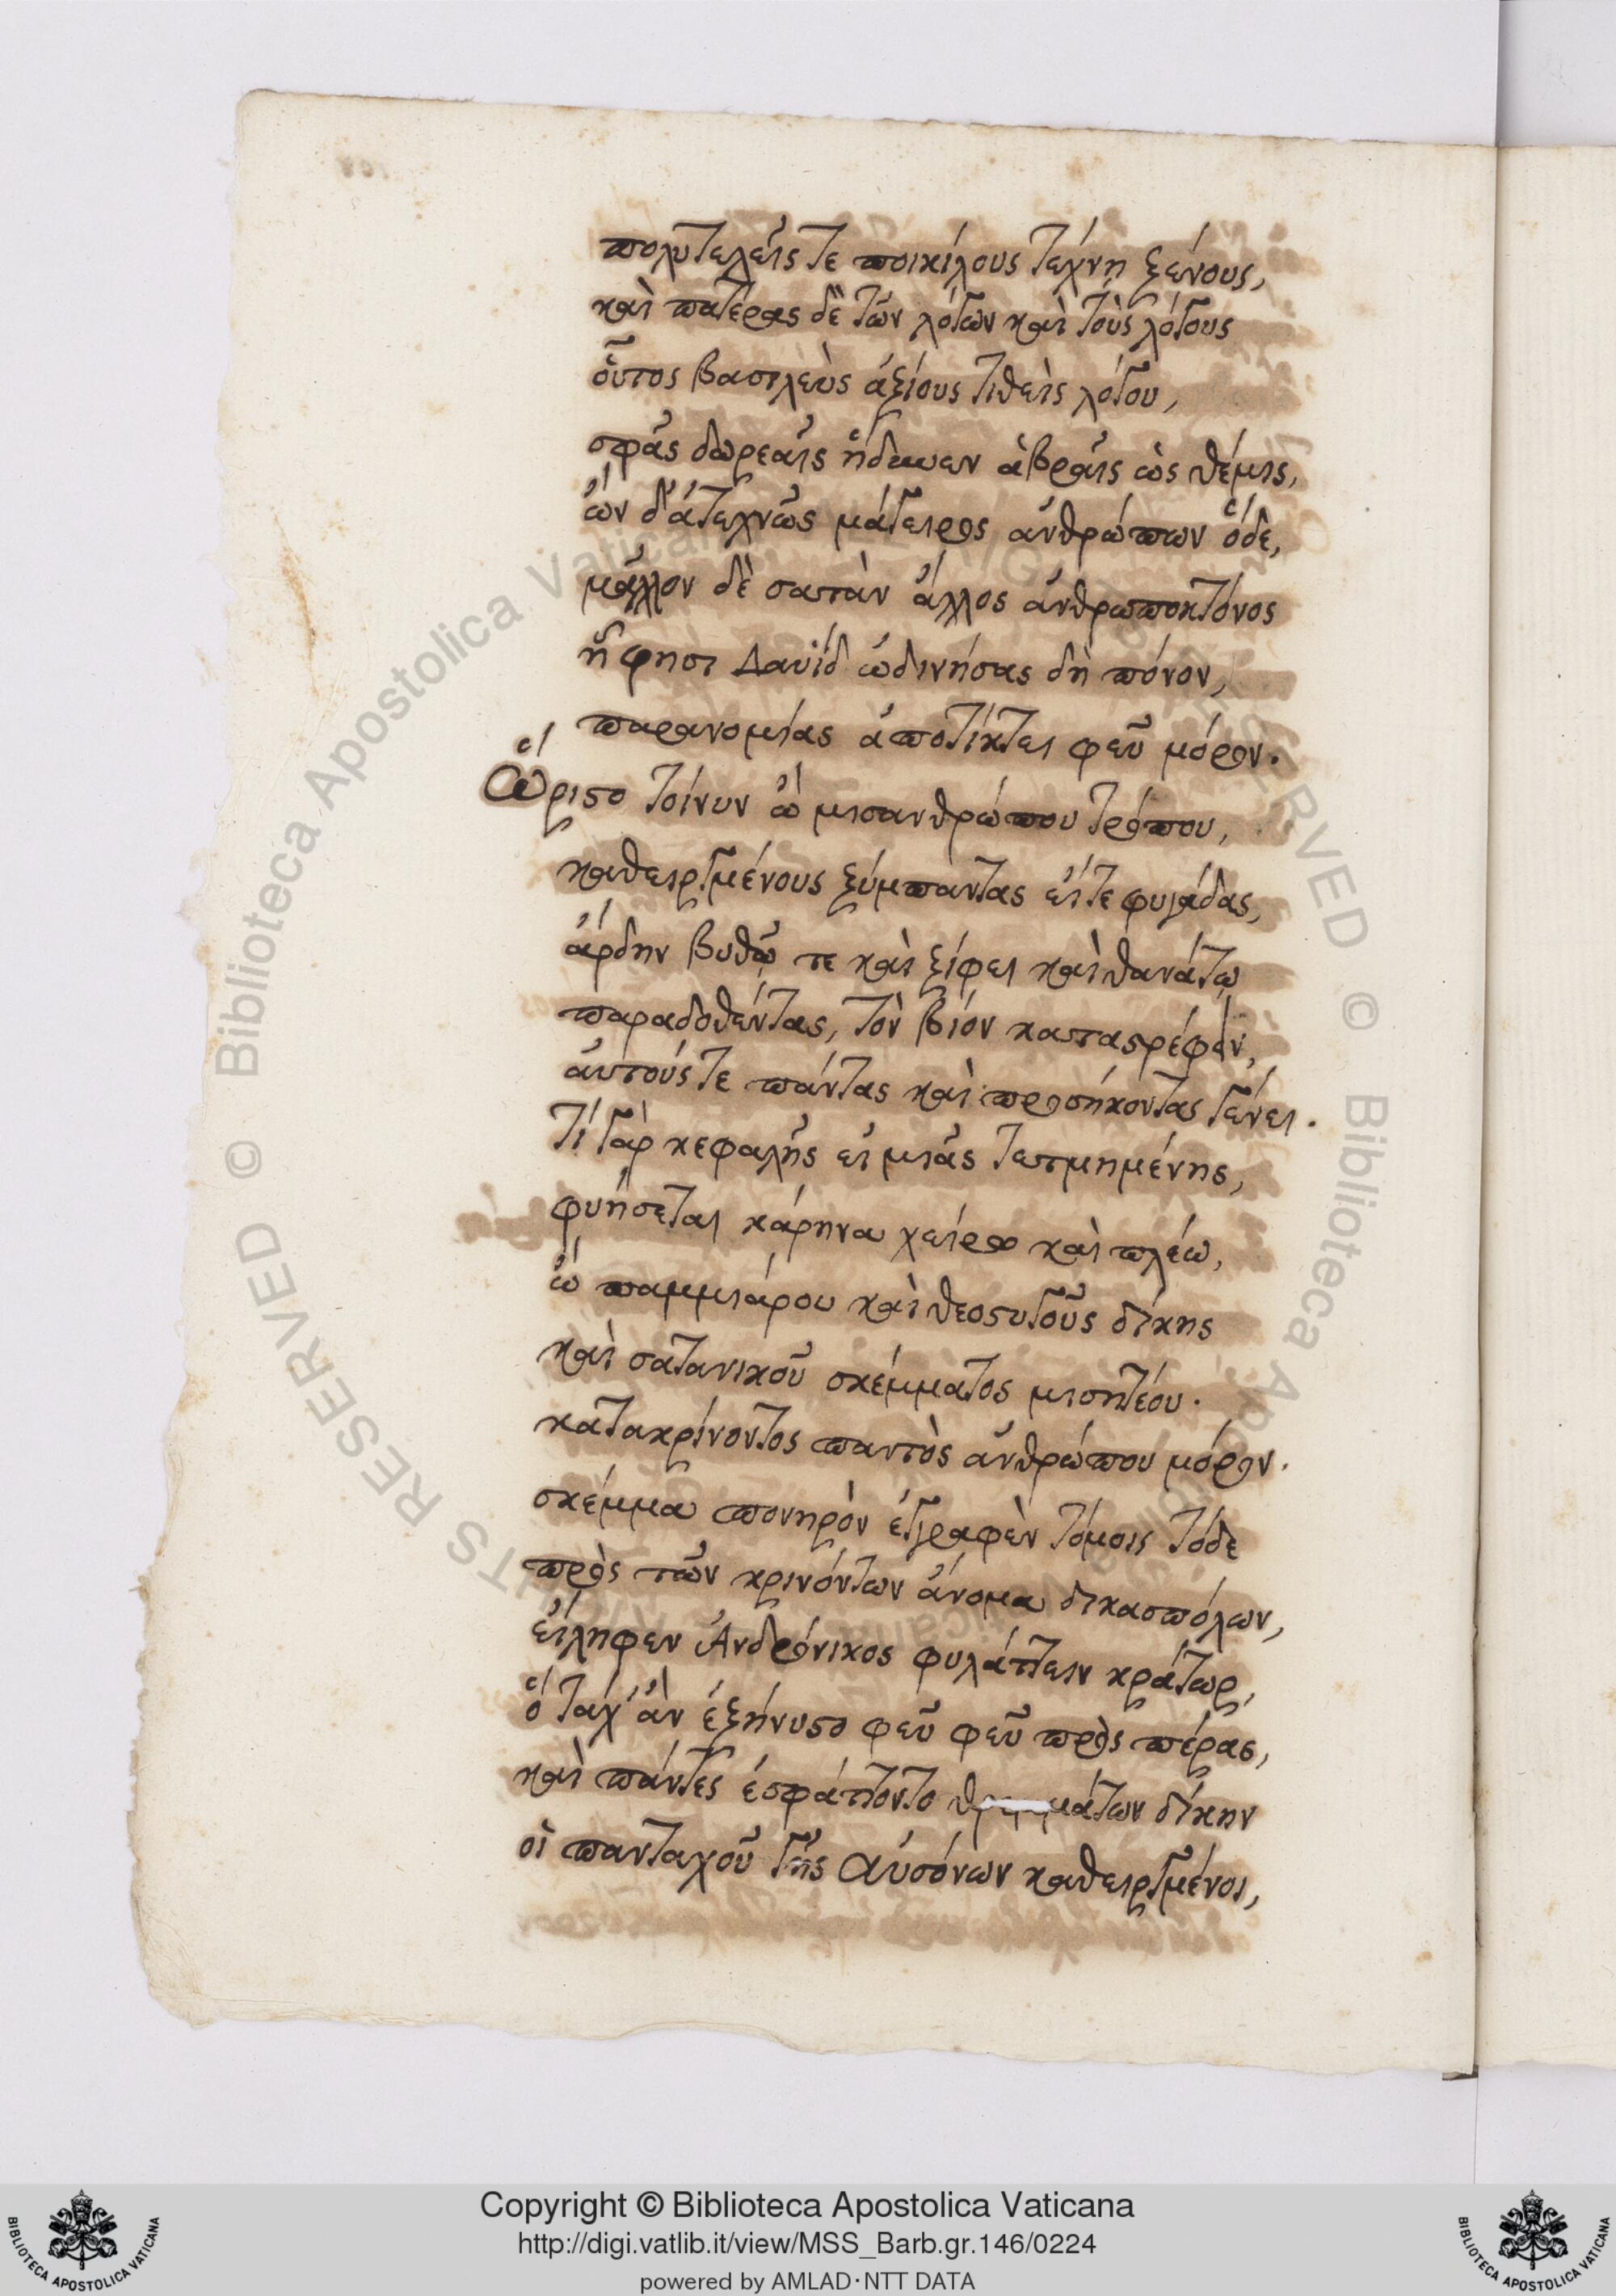 πολυτελεῖς τε ποικίλους τέχνη ξένους,
καὶ πατέρας δὲ τῶν λόγων καὶ τοὺς λόγους
οὗτος βασιλεὺς ἀξίους τιθεὶς λόγου,
σφᾶς δωρεαῖς ἥδυνεν ἁβραῖς ὡς θέμις,
ὧν δ' ἀτεχνῶς μάγειρος ἀνθρώπων ὅδε,
μᾶλλον δὲ σατὰν ἄλλος ἀνθρωποκτόνος
ᾗ φησι Δαυὶδ ὠδινήσας δὴ πόνον,
παρανομίας ἀποτίκτει φεῦ μόρον.
Ὥριστο τοίνυν ὢ μισανθρώπου τρόπου,
καθειργμένους ξύμπαντας εἴτε φυγάδας,
ἄρδην βυθῷ τε καὶ ξίφει καὶ θανάτῳ
παραδοθέντας, τὸν βίον καταστρέφειν,
αὐτούς τε πάντας καὶ προσήκοντας γένει.
Τί γὰρ κεφαλῆς εἰ μιᾶς τετμημένης,
φυήσεται κάρηνα χείρω καὶ πλέω,
ὢ παμμιάρου καὶ θεοστυγοῦς δίκης
καὶ σατανικοῦ σκέμματος μισητέου.
κατακρίνοντος παντὸς ἀνθρώπου μόρον.
σκέμμα πονηρὸν ἐγγραφὲν τόμοις τόδε
πρὸς τῶν κρινόντων ἄνομα δικασπόλων,
εἴληφεν Ἀνδρόνικος φυλάττειν κράτωρ,
ὃ τάχ' ἂν ἐξήνυστο φεῦ φεῦ πρὸς πέρας,
καὶ πάντες ἐσφάττοντο θρεμμάτων δίκην
οἱ πανταχοῦ γῆς Αὐσόνων καθειργμένοι,
© Biblioteca Apostolica Vaticana
Copyright © Biblioteca Apostolica Vaticana
http://digi.vatlib.it/view/MSS_Barb.gr.146/0224
powered by AMLAD·NTT DATA
BIBLIOTECA APOSTOLICA VATICANA
BIBLIOTECA APOSTOLICA VATICANA